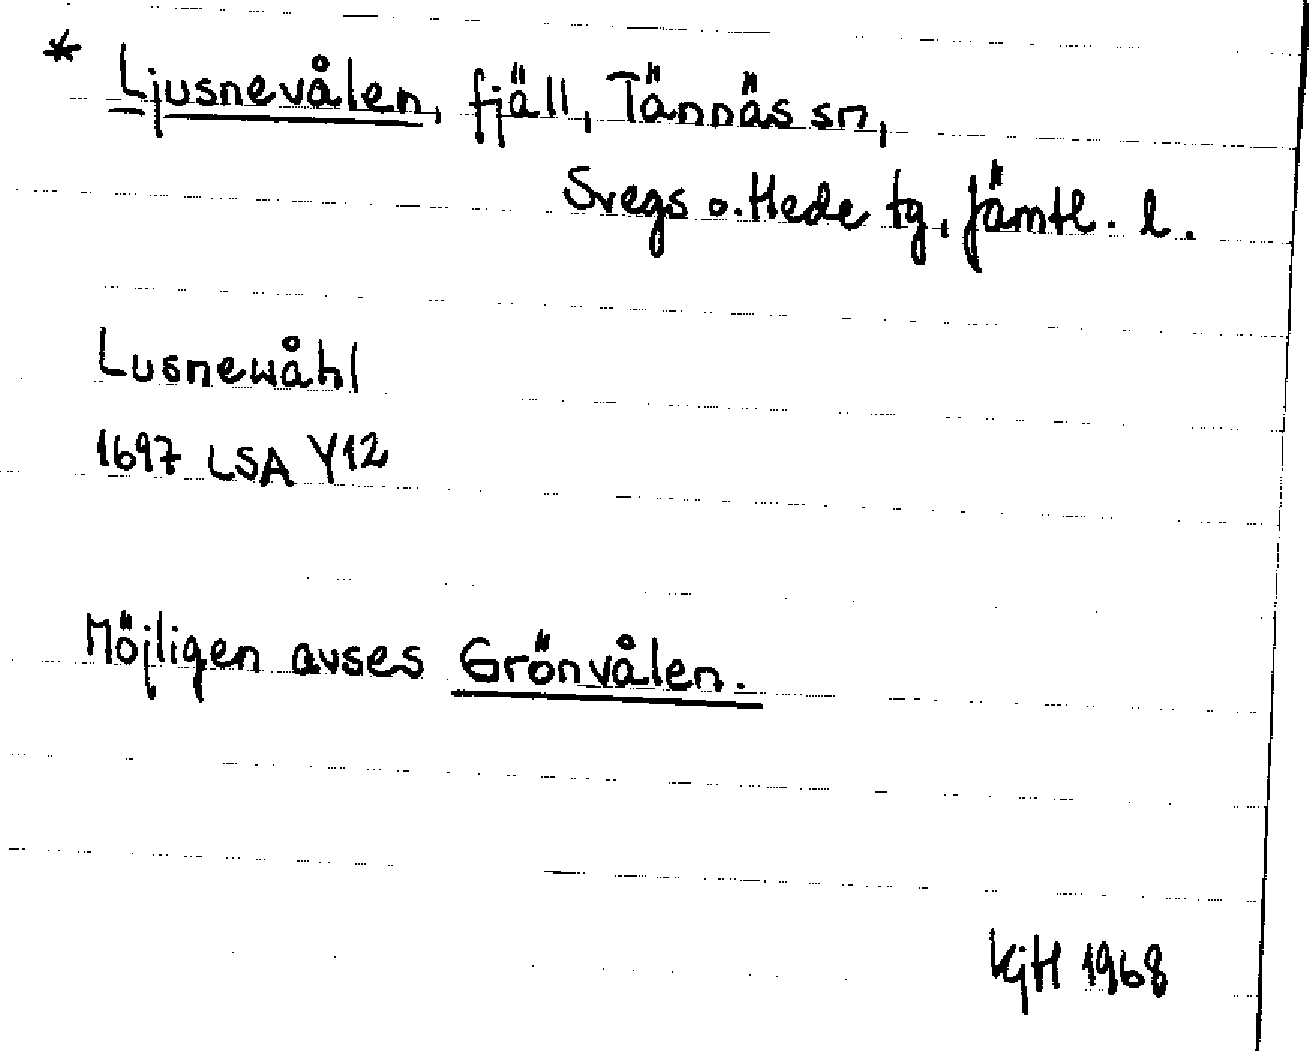 * Ljusnevålen, fjäll, Tännäs sn,
Svegs o. Hede tg, Jämtl. l.
Lusnewåhl
1697 LSA Y12
Möjligen avses Grönvålen.
KjH 1968